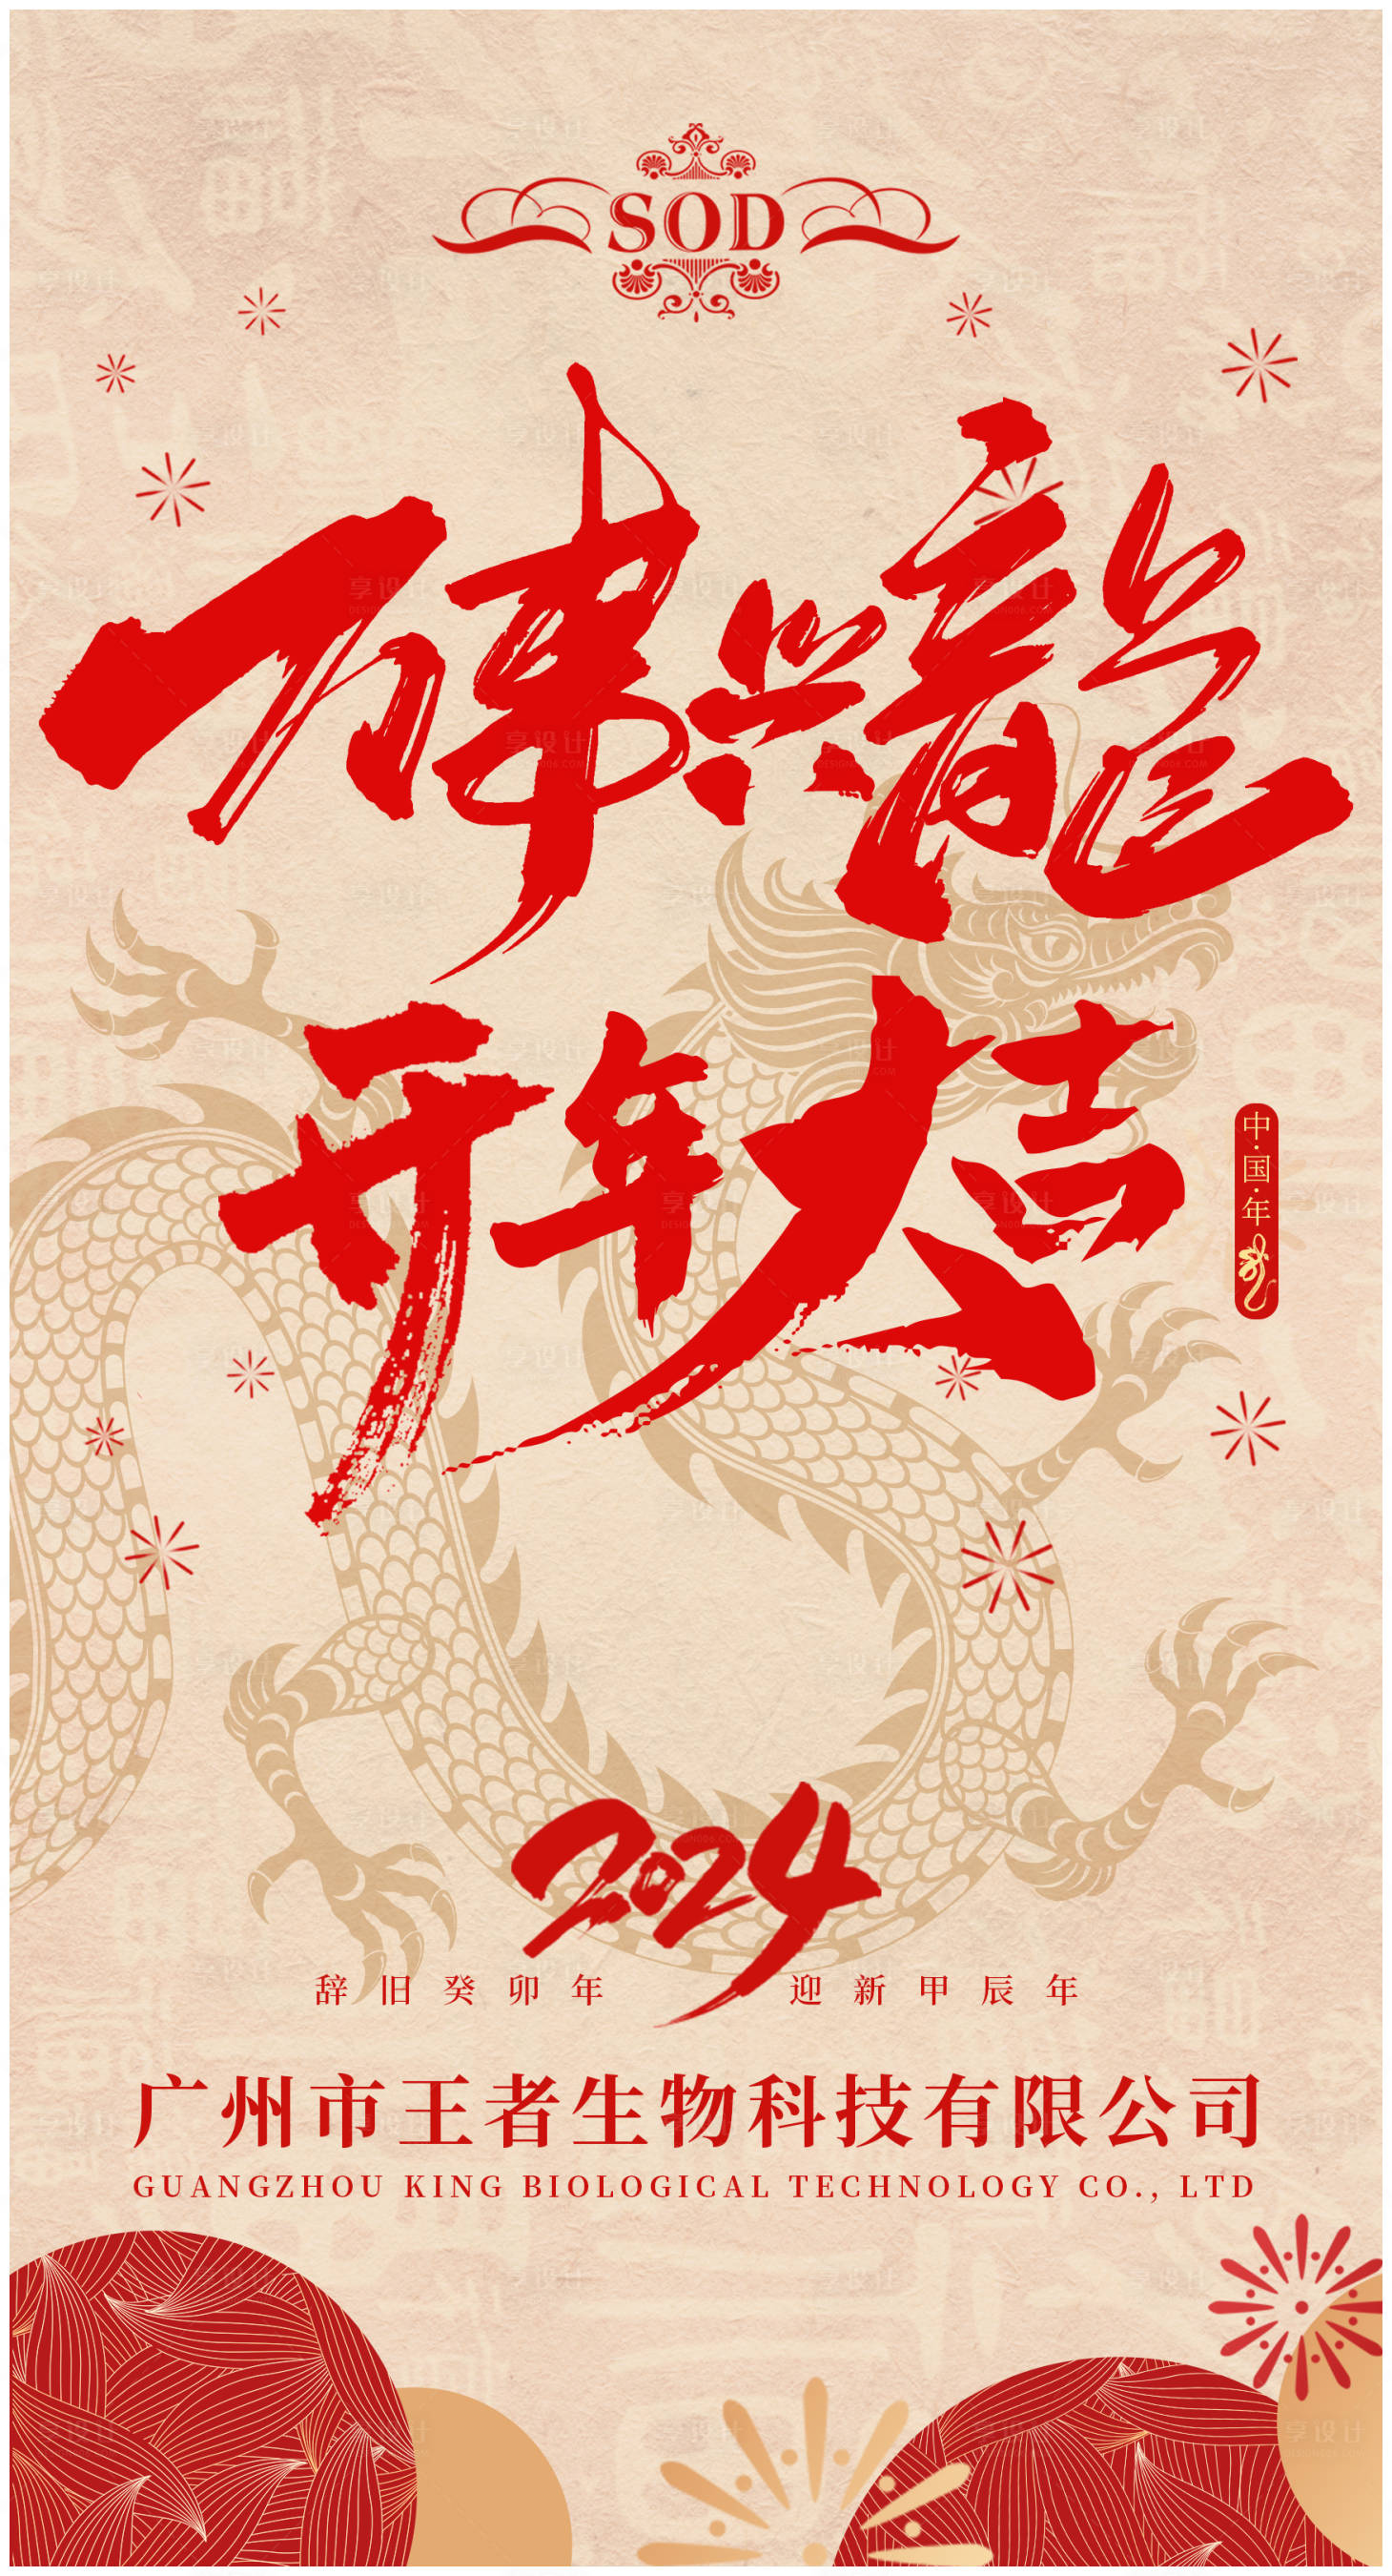 SOD
万事兴龍
开年大吉
中·国·年
2024
辞旧癸卯年 迎新甲辰年
广州市王者生物科技有限公司
GUANGZHOU KING BIOLOGICAL TECHNOLOGY CO., LTD
享设计